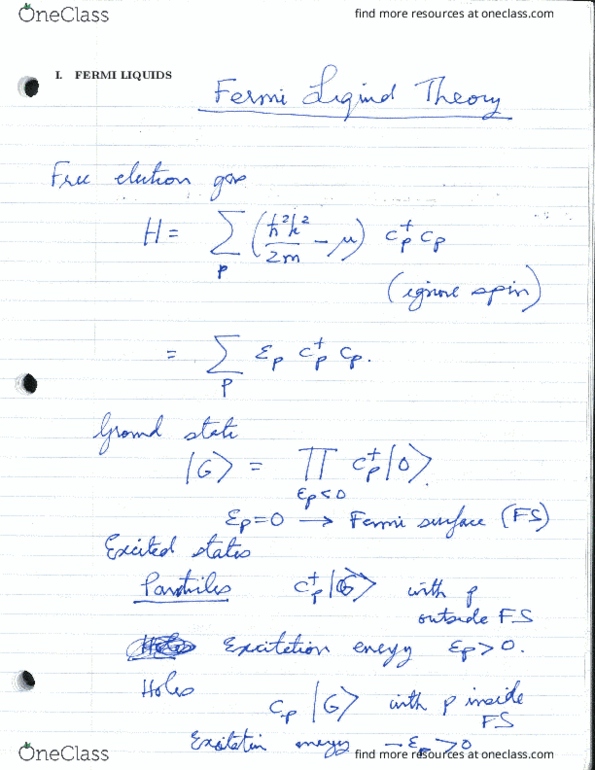 OneClass find more resources at oneclass.com
I. FERMI LIQUIDS
Fermi Liquid Theory
Free electron gas
H = ∑_p (ħ²k²/2m − μ) c_p† c_p
(ignore spin)
= ∑_p ε_p c_p† c_p.
Ground state
|G⟩ = ∏_{ε_p<0} c_p† |0⟩.
ε_p=0 → Fermi surface (FS)
Excited states
Particles c_p†|G⟩ with p
outside FS
Holes Excitation energy ε_p>0.
Holes
c_p |G⟩ with p inside
FS
Excitation energy −ε_p>0
OneClass find more resources at oneclass.com